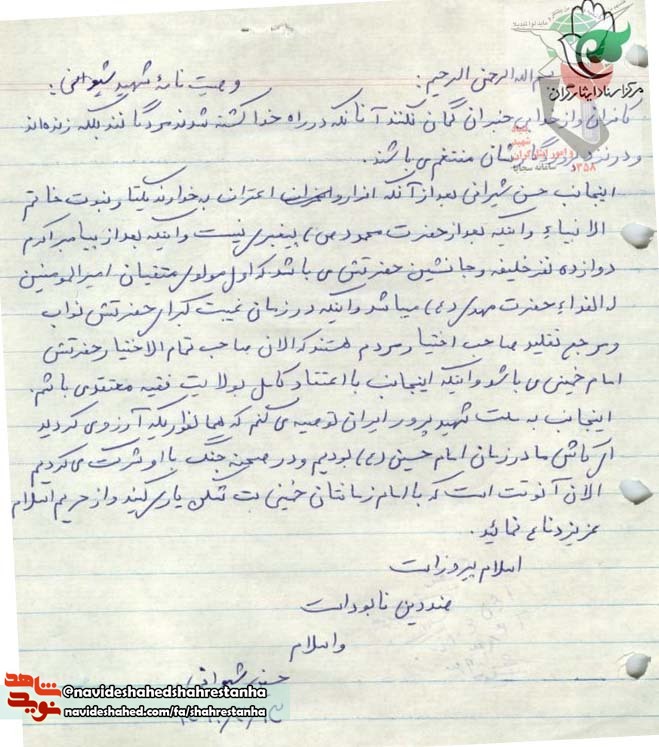 بسم الله الرحمن الرحیم:
وصیت نامهٔ شهید شیرانی:
مرکز اسناد ایثارگران
کافران از خدا بی خبران گمان نکنند آنانکه در راه خدا کشته شدند مردگانند بلکه زنده اند
و در نزد پروردگارشان منتعم می باشند.
بنیاد شهید و امور ایثارگران
سامانه سجایا ۱۳۵۸
اینجانب حسن شیرانی بعد از آنکه اقرار و اعتراف به خداوند یکتا و نبوت خاتم
الانبیاء و اینکه بعد از حضرت محمود (ص) پیغمبری نیست و اینکه بعد از پیامبر اکرم
دوازده نفر خلیفه و جانشین حضرتش می باشد که اول مولای متقیان امیرالمومنین
له الفداء حضرت مهدی (ع) میباشد و اینکه در زمان غیبت کبرای حضرتش نواب
و مرجع تقلید صاحب اختیار مردم هستند که الان صاحب تمام الاختیار حضرتش
امام خمینی می باشد و اینکه اینجانب با اعتنا و کامل بولایت فقیه معتقد می باشم.
اینجانب به ملت شهید پرور ایران توصیه می کنم که همانطوریکه آرزو می کردید
ای کاش ما در زمان امام حسین (ع) بودیم و در صحنه جنگ با او شرکت می کردیم
الان آنوقت است که با امام زمانتان خمینی بت شکن یاری کنید و از حریم اسلام
عزیز دفاع نمائید.
اسلام پیروز است
ضددین نابود است
والسلام
حسن شیرانی
شاهد
نوید
@navideshahedshahrestanha
navideshahed.com/fa/shahrestanha